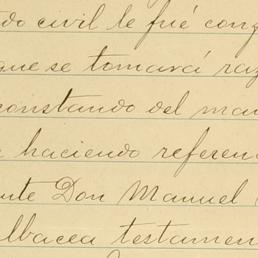 do civil le fué con
que se tomará raz
constando del ma
haciendo referen
nte Don Manuel
lbacea testamen